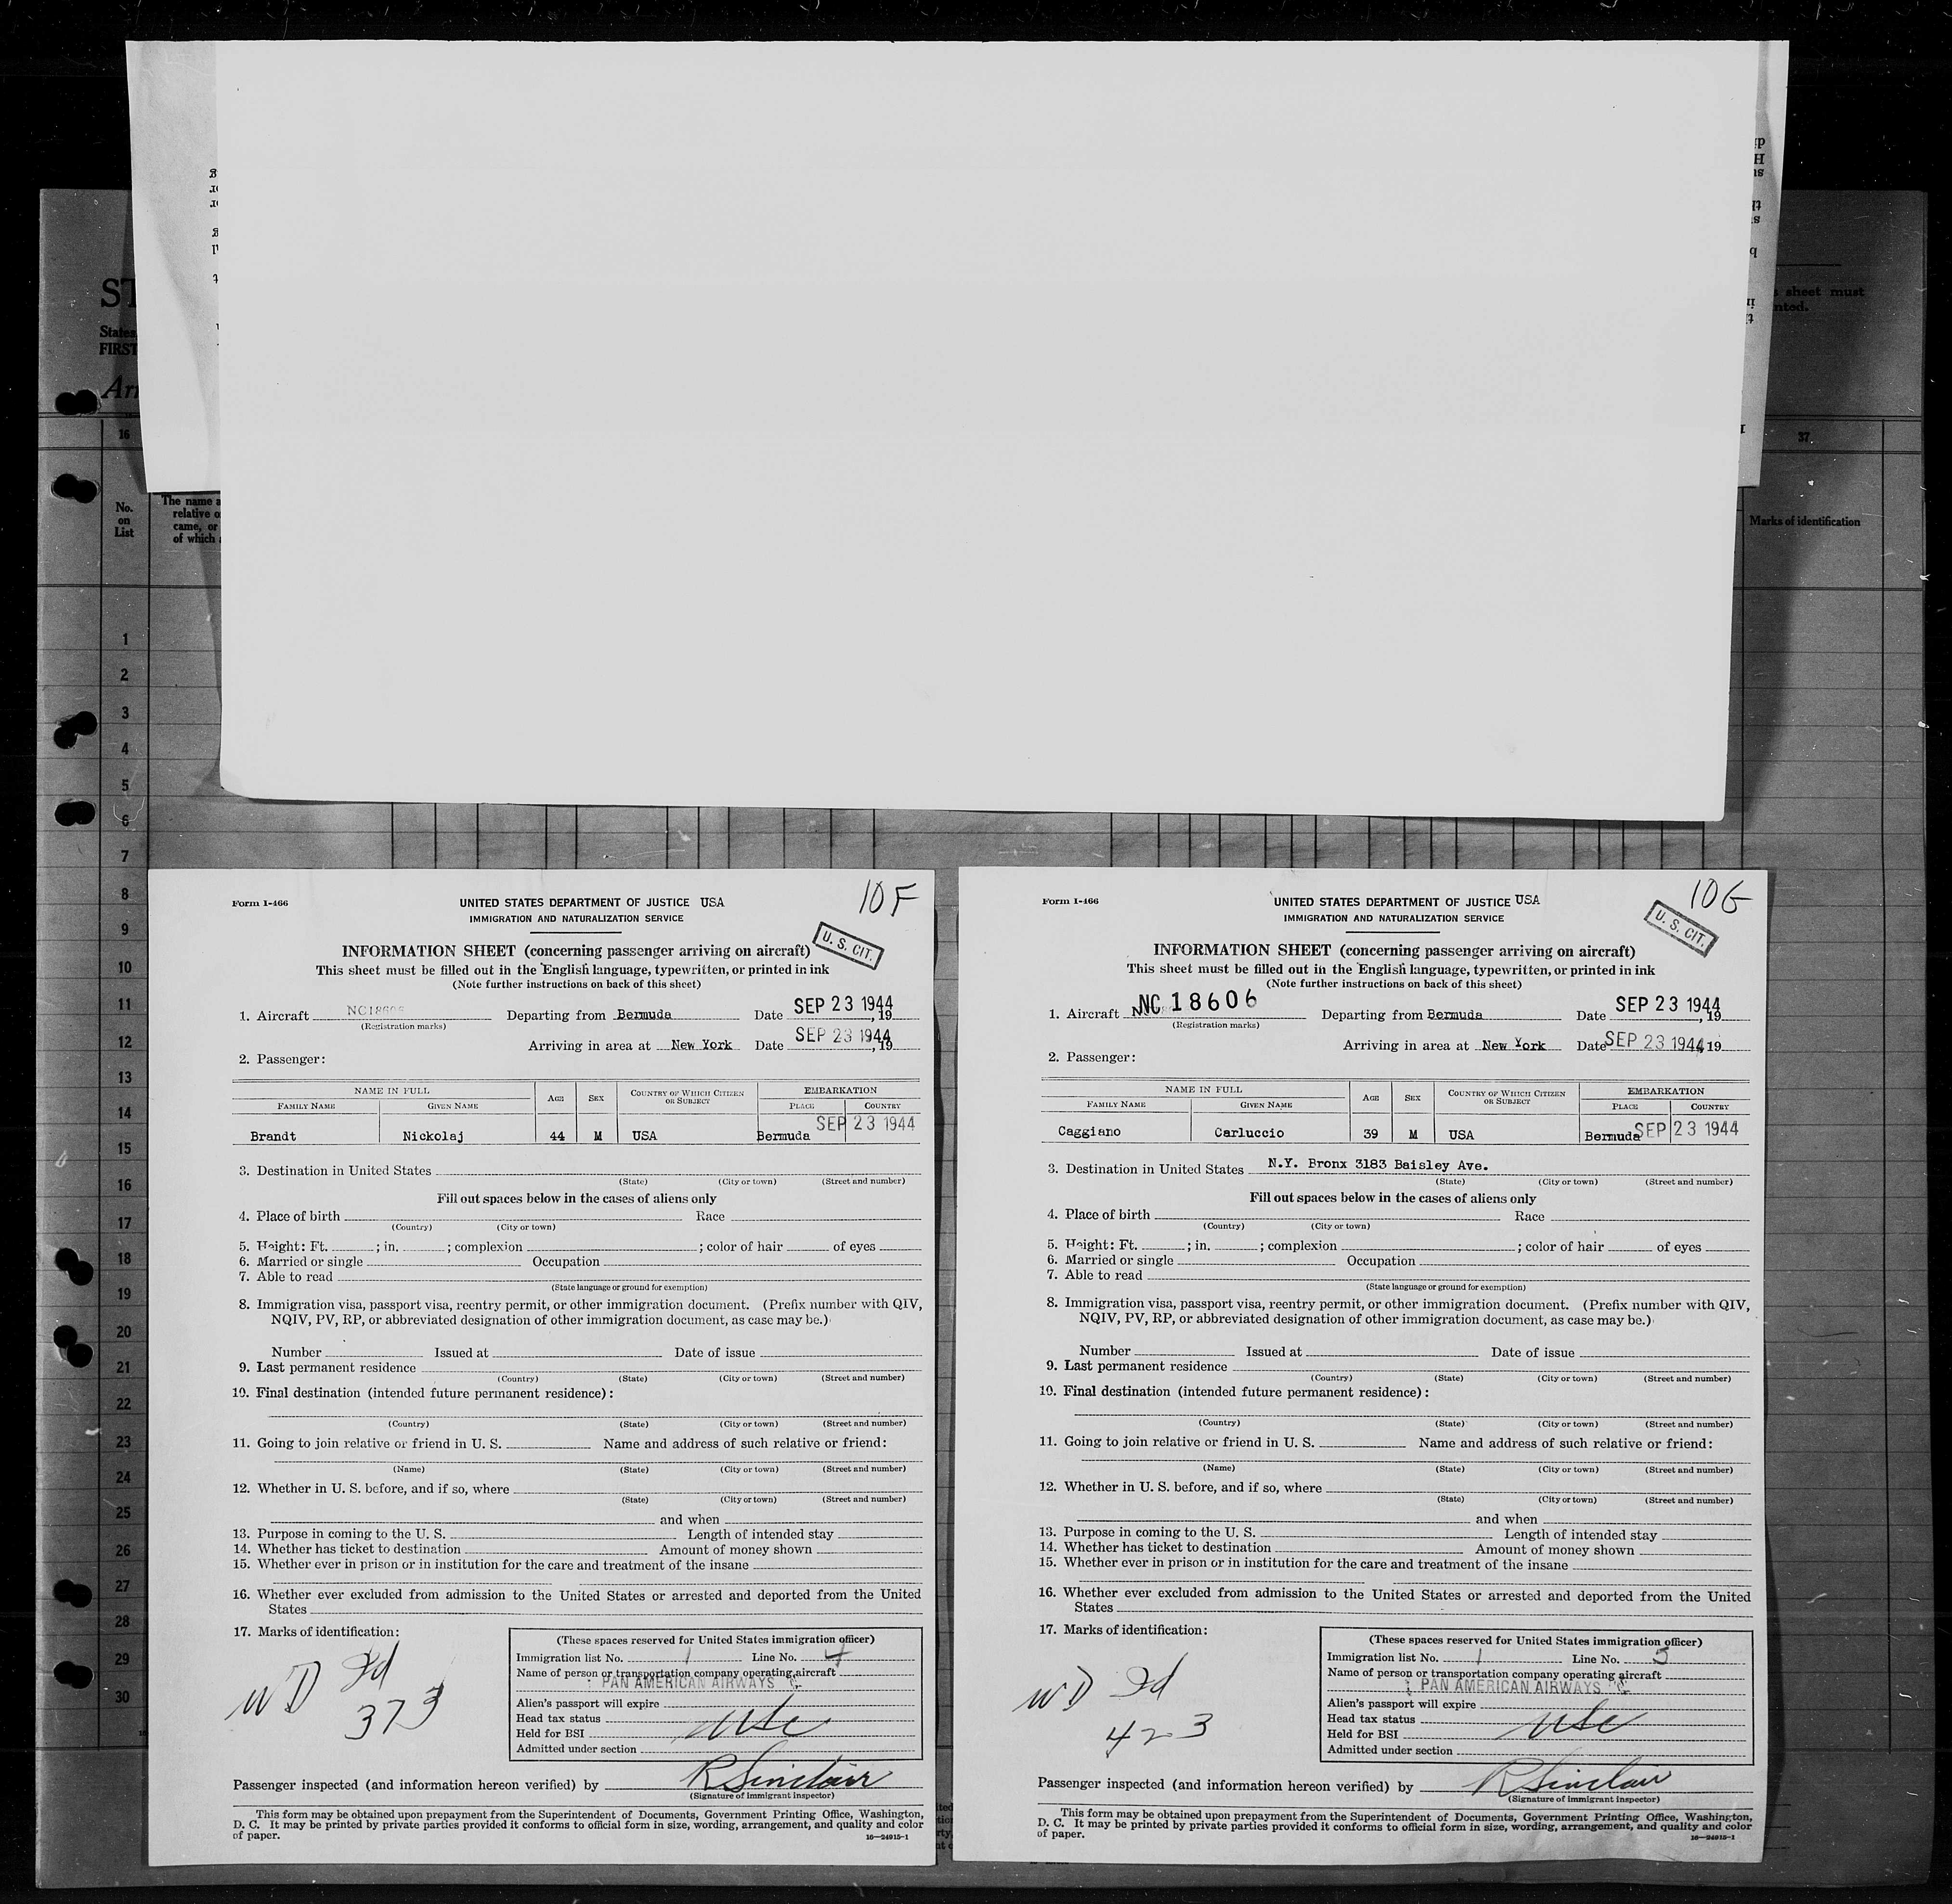 ST
States
FIRST
Arr
sheet must
nted.
16
37
No.
on
List
The name a
relative o
came, or
of which a
Marks of identification
1
2
3
4
5
6
7
8
9
10
11
12
13
14
15
16
17
18
19
20
21
22
23
24
25
26
27
28
29
30
10F
Form I-466
UNITED STATES DEPARTMENT OF JUSTICE USA
IMMIGRATION AND NATURALIZATION SERVICE
U. S. CIT.
INFORMATION SHEET (concerning passenger arriving on aircraft)
This sheet must be filled out in the English language, typewritten, or printed in ink
(Note further instructions on back of this sheet)
1. Aircraft NC18606 Departing from Bermuda Date SEP 23 1944, 19
(Registration marks)
Arriving in area at New York Date SEP 23 1944, 19
2. Passenger:
NAME IN FULL AGE SEX COUNTRY OF WHICH CITIZEN OR SUBJECT EMBARKATION
FAMILY NAME GIVEN NAME PLACE COUNTRY
SEP 23 1944
Brandt Nickolaj 44 M USA Bermuda
3. Destination in United States
(State) (City or town) (Street and number)
Fill out spaces below in the cases of aliens only
4. Place of birth Race
(Country) (City or town)
5. Height: Ft. ; in. ; complexion ; color of hair of eyes
6. Married or single Occupation
7. Able to read
(State language or ground for exemption)
8. Immigration visa, passport visa, reentry permit, or other immigration document. (Prefix number with QIV,
NQIV, PV, RP, or abbreviated designation of other immigration document, as case may be.)
Number Issued at Date of issue
9. Last permanent residence
(Country) (State) (City or town) (Street and number)
10. Final destination (intended future permanent residence):
(Country) (State) (City or town) (Street and number)
11. Going to join relative or friend in U. S. Name and address of such relative or friend:
(Name) (State) (City or town) (Street and number)
12. Whether in U. S. before, and if so, where
(State) (City or town) (Street and number)
and when
13. Purpose in coming to the U. S. Length of intended stay
14. Whether has ticket to destination Amount of money shown
15. Whether ever in prison or in institution for the care and treatment of the insane
16. Whether ever excluded from admission to the United States or arrested and deported from the United
States
17. Marks of identification:
WD Id
373
(These spaces reserved for United States immigration officer)
Immigration list No. 1 Line No. 4
Name of person or transportation company operating aircraft
PAN AMERICAN AIRWAYS
Alien's passport will expire
Head tax status USC
Held for BSI
Admitted under section
Passenger inspected (and information hereon verified) by R Sinclair
(Signature of immigrant inspector)
This form may be obtained upon prepayment from the Superintendent of Documents, Government Printing Office, Washington,
D. C. It may be printed by private parties provided it conforms to official form in size, wording, arrangement, and quality and color
of paper. 16—24915-1
10G
Form I-466
UNITED STATES DEPARTMENT OF JUSTICE USA
IMMIGRATION AND NATURALIZATION SERVICE
U. S. CIT.
INFORMATION SHEET (concerning passenger arriving on aircraft)
This sheet must be filled out in the English language, typewritten, or printed in ink
(Note further instructions on back of this sheet)
1. Aircraft NC 18606 Departing from Bermuda Date SEP 23 1944, 19
(Registration marks)
Arriving in area at New York Date SEP 23 1944, 19
2. Passenger:
NAME IN FULL AGE SEX COUNTRY OF WHICH CITIZEN OR SUBJECT EMBARKATION
FAMILY NAME GIVEN NAME PLACE COUNTRY
Caggiano Carluccio 39 M USA Bermuda SEP 23 1944
3. Destination in United States N.Y. Bronx 3183 Baisley Ave.
(State) (City or town) (Street and number)
Fill out spaces below in the cases of aliens only
4. Place of birth Race
(Country) (City or town)
5. Height: Ft. ; in. ; complexion ; color of hair of eyes
6. Married or single Occupation
7. Able to read
(State language or ground for exemption)
8. Immigration visa, passport visa, reentry permit, or other immigration document. (Prefix number with QIV,
NQIV, PV, RP, or abbreviated designation of other immigration document, as case may be.)
Number Issued at Date of issue
9. Last permanent residence
(Country) (State) (City or town) (Street and number)
10. Final destination (intended future permanent residence):
(Country) (State) (City or town) (Street and number)
11. Going to join relative or friend in U. S. Name and address of such relative or friend:
(Name) (State) (City or town) (Street and number)
12. Whether in U. S. before, and if so, where
(State) (City or town) (Street and number)
and when
13. Purpose in coming to the U. S. Length of intended stay
14. Whether has ticket to destination Amount of money shown
15. Whether ever in prison or in institution for the care and treatment of the insane
16. Whether ever excluded from admission to the United States or arrested and deported from the United
States
17. Marks of identification:
WD Id
423
(These spaces reserved for United States immigration officer)
Immigration list No. 1 Line No. 5
Name of person or transportation company operating aircraft
PAN AMERICAN AIRWAYS
Alien's passport will expire
Head tax status USC
Held for BSI
Admitted under section
Passenger inspected (and information hereon verified) by R Sinclair
(Signature of immigrant inspector)
This form may be obtained upon prepayment from the Superintendent of Documents, Government Printing Office, Washington,
D. C. It may be printed by private parties provided it conforms to official form in size, wording, arrangement, and quality and color
of paper. 16—24915-1